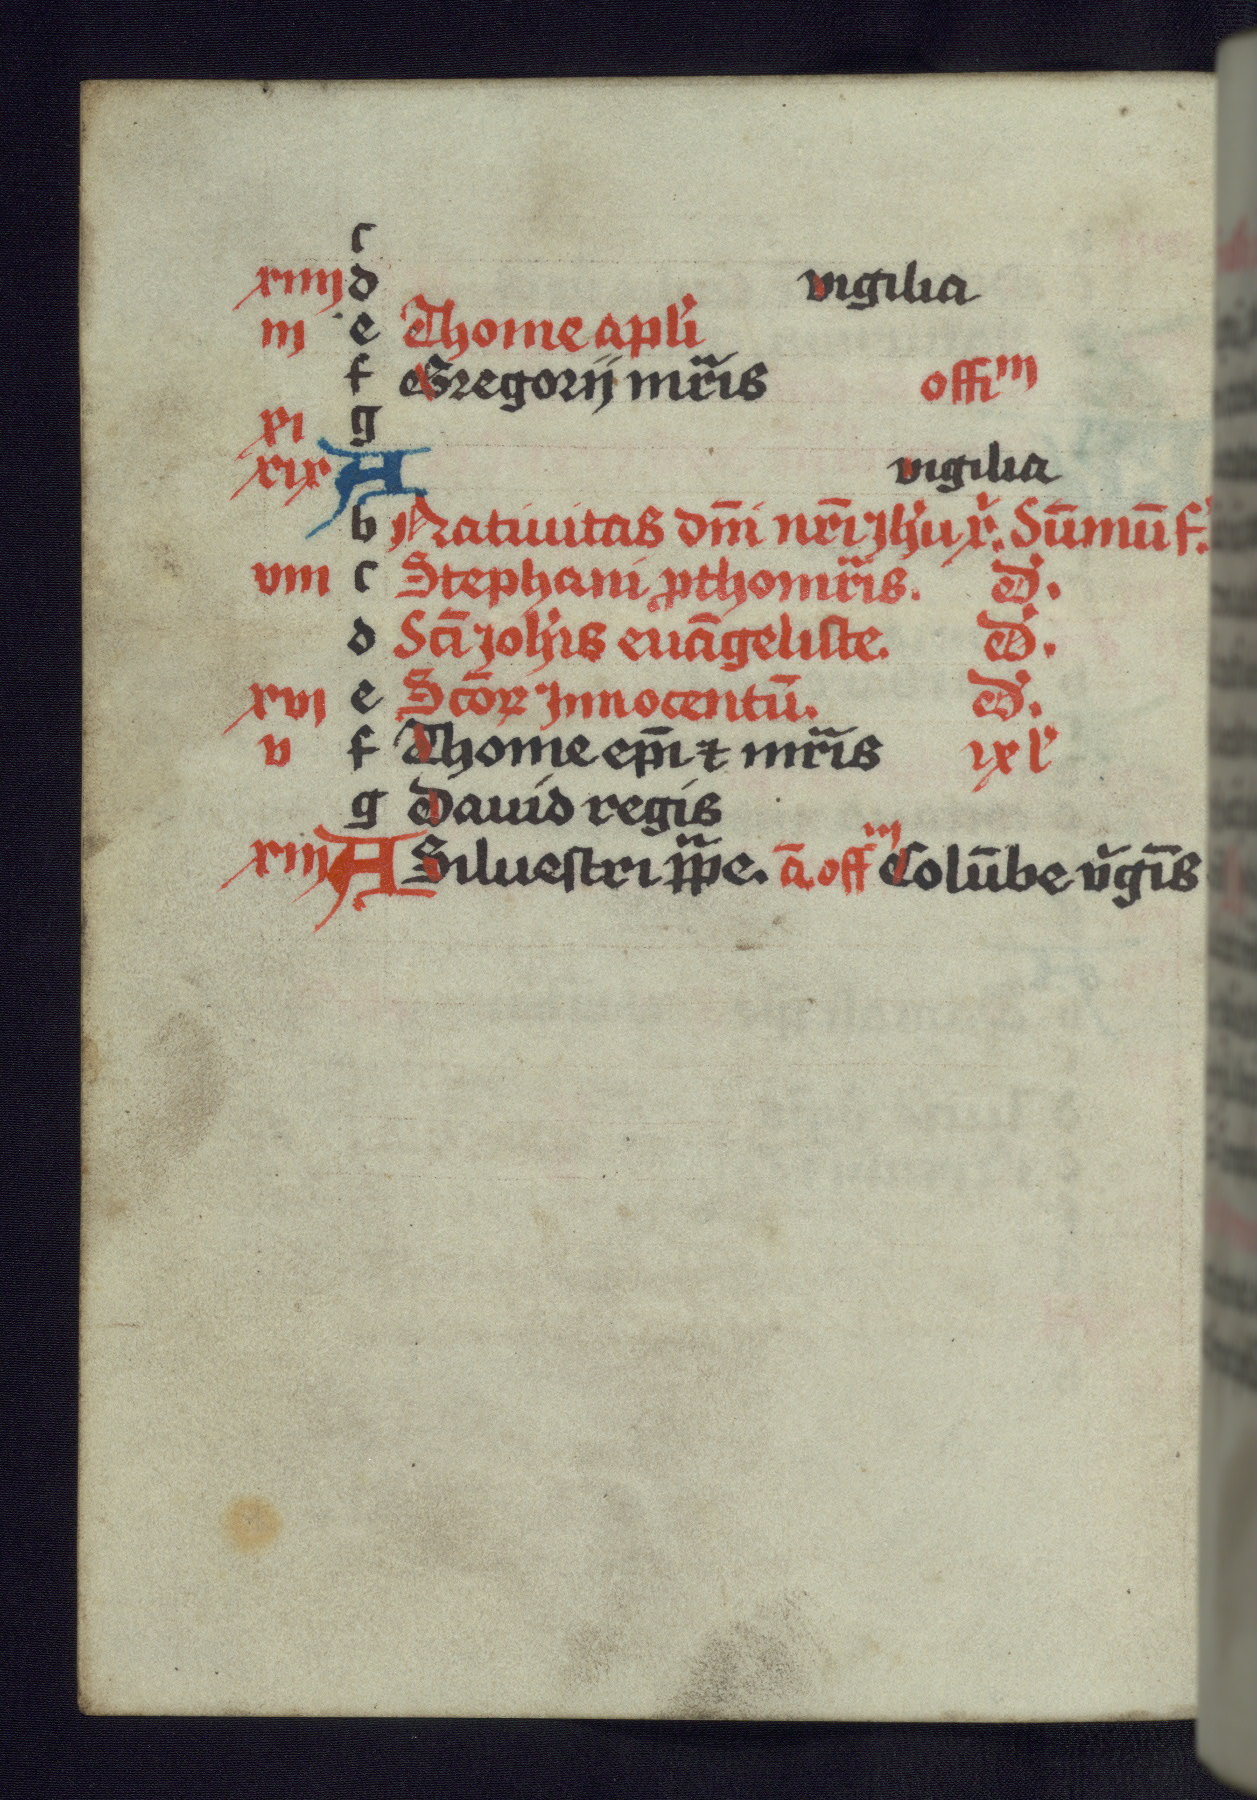 c
xiiij d vigilia
iij e Thome apl'i
f Gregorij mr̄is offi m
xi g
xix A vigilia
b Natiuitas dn̄i nr̄i Jh'u x'. Sūmū f'.
viij c Stephani ꝓthomr̄is. D'.
d Scī Joh'is euāgeliste. D'.
xvi e Scōꝝ Innocentū. D'.
v f Thome ep̄i ⁊ mr̄is ix l'
g Dauid regis
xiij A Siluestri pp̄e. ā. off m Colūbe v'gīs